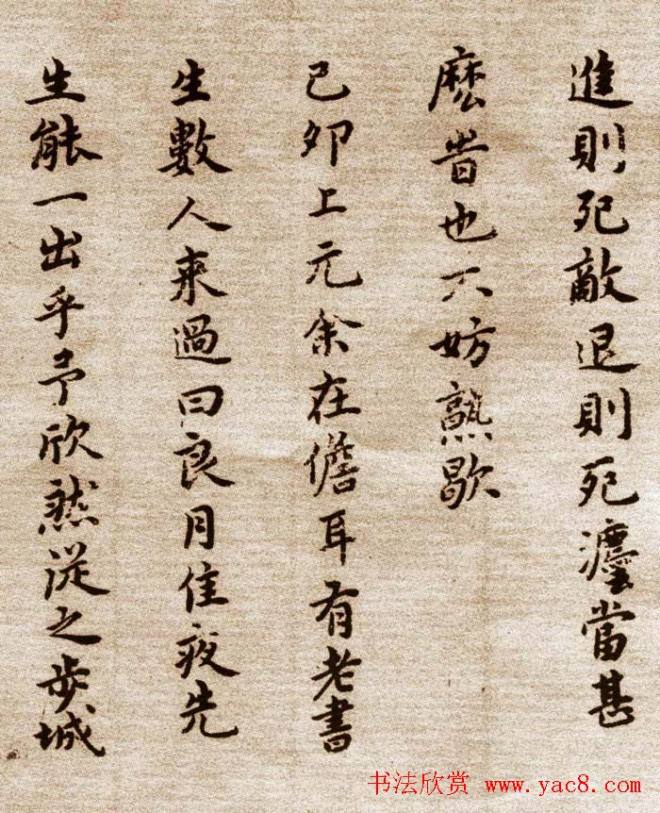 進則死敵退則死灋當甚
麽昔也不妨熟歇
己卯上元余在儋耳有老書
生數人来過曰良月佳夜先
生能一出乎予欣然從之步城
书法欣赏 www.yac8.com